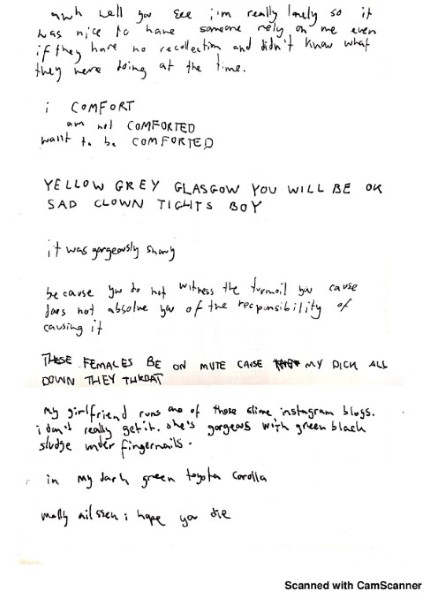 awh well you see i'm really lonely so it
was nice to have someone rely on me even
if they have no recollection and didn't know what
they were doing at the time.
i COMFORT
am not COMFORTED
want to be COMFORTED
YELLOW GREY GLASGOW YOU WILL BE OK
SAD CLOWN TIGHTS BOY
it was gorgeously
because you do not witness the turmoil you cause
does not absolve you of the responsibility of
causing it
THESE FEMALES BE ON MUTE CAUSE MY DICK ALL
DOWN THEY THROAT
my girlfriend runs one of those slime instagram blogs.
i don't really get it. she's gorgeous with green black
sludge under fingernails.
in my dark green toyota corolla
molly nilsson i hope you die
Scanned with CamScanner